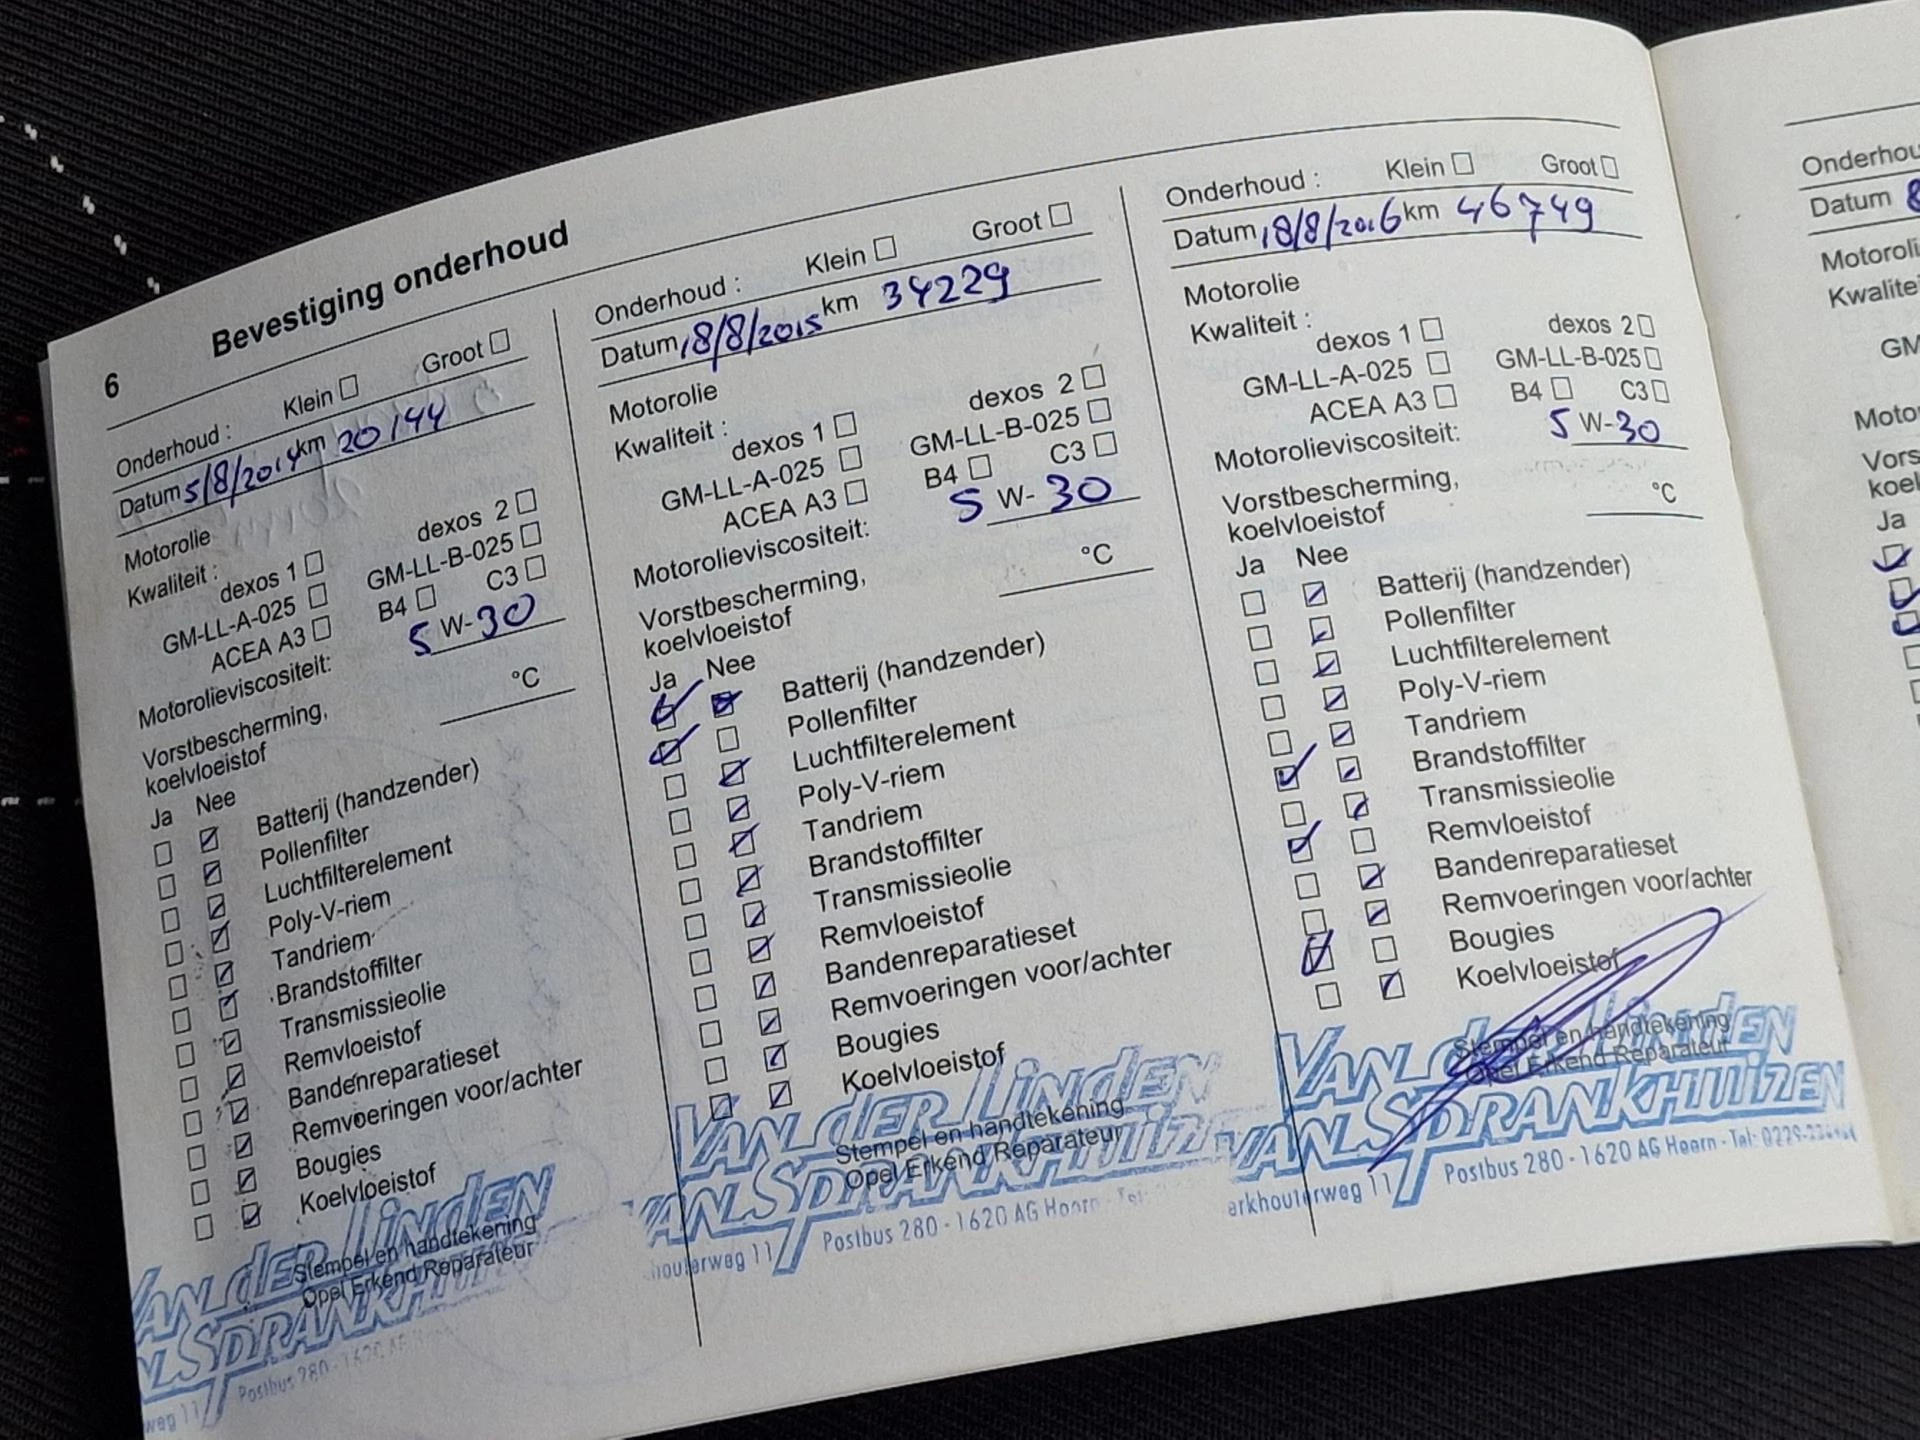 6 Bevestiging onderhoud
Onderhoud : Klein Groot
Datum 5/8/2014 km 20144
Motorolie
Kwaliteit :
dexos 1 dexos 2
GM-LL-A-025 GM-LL-B-025
ACEA A3 B4 C3
Motorolieviscositeit: 5 W-30
Vorstbescherming,
koelvloeistof °C
Ja Nee
Batterij (handzender)
Pollenfilter
Luchtfilterelement
Poly-V-riem
Tandriem
Brandstoffilter
Transmissieolie
Remvloeistof
Bandenreparatieset
Remvoeringen voor/achter
Bougies
Koelvloeistof
VAN der LINdEN
Stempel en handtekening
Opel Erkend Reparateur
Postbus 280 - 1620
weg 11
Onderhoud : Klein Groot
Datum 18/8/2015 km 34229
Motorolie
Kwaliteit :
dexos 1 dexos 2
GM-LL-A-025 GM-LL-B-025
ACEA A3 B4 C3
Motorolieviscositeit: 5 W-30
Vorstbescherming,
koelvloeistof °C
Ja Nee
Batterij (handzender)
Pollenfilter
Luchtfilterelement
Poly-V-riem
Tandriem
Brandstoffilter
Transmissieolie
Remvloeistof
Bandenreparatieset
Remvoeringen voor/achter
Bougies
Koelvloeistof
VAN der LINdEN
Stempel en handtekening
Opel Erkend Reparateur
houterweg 11 Postbus 280 - 1620 AG Hoorn - Tel:
Onderhoud : Klein Groot
Datum 18/8/2016 km 46749
Motorolie
Kwaliteit :
dexos 1 dexos 2
GM-LL-A-025 GM-LL-B-025
ACEA A3 B4 C3
Motorolieviscositeit: 5 W-30
Vorstbescherming,
koelvloeistof °C
Ja Nee
Batterij (handzender)
Pollenfilter
Luchtfilterelement
Poly-V-riem
Tandriem
Brandstoffilter
Transmissieolie
Remvloeistof
Bandenreparatieset
Remvoeringen voor/achter
Bougies
Koelvloeistof
VAN der LINdEN
Stempel en handtekening
Opel Erkend Reparateur
VAN SPRANKHUIZEN
erkhouterweg 11 Postbus 280 - 1620 AG Hoorn - Tel: 0229-
Onderhou
Datum 8
Motoroli
Kwalite
GM
Moto
Vors
koel
Ja